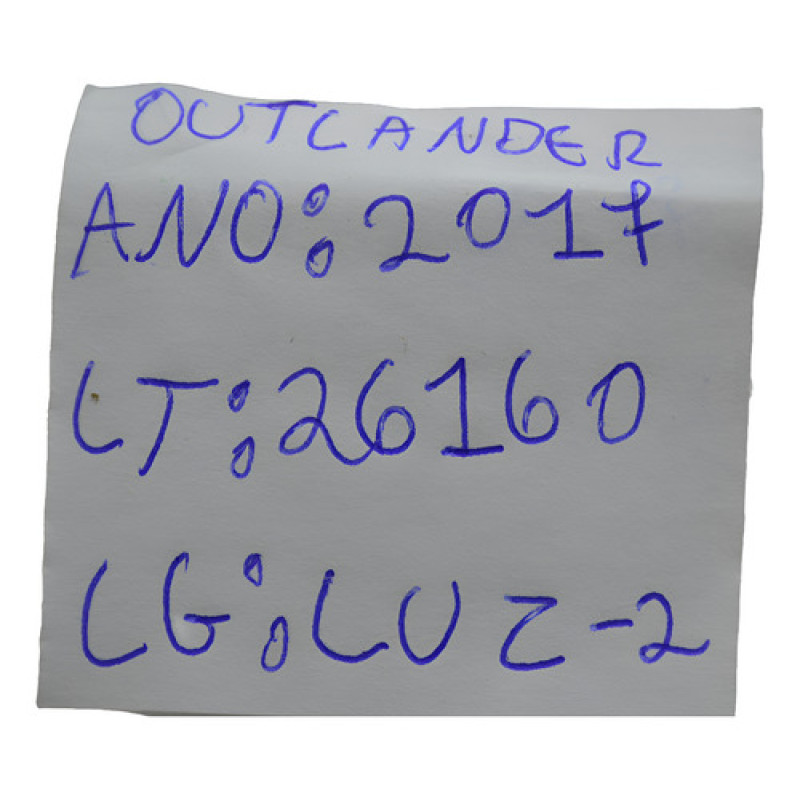 OUTLANDER
ANO: 2017
LT: 26160
LG: LUZ-2